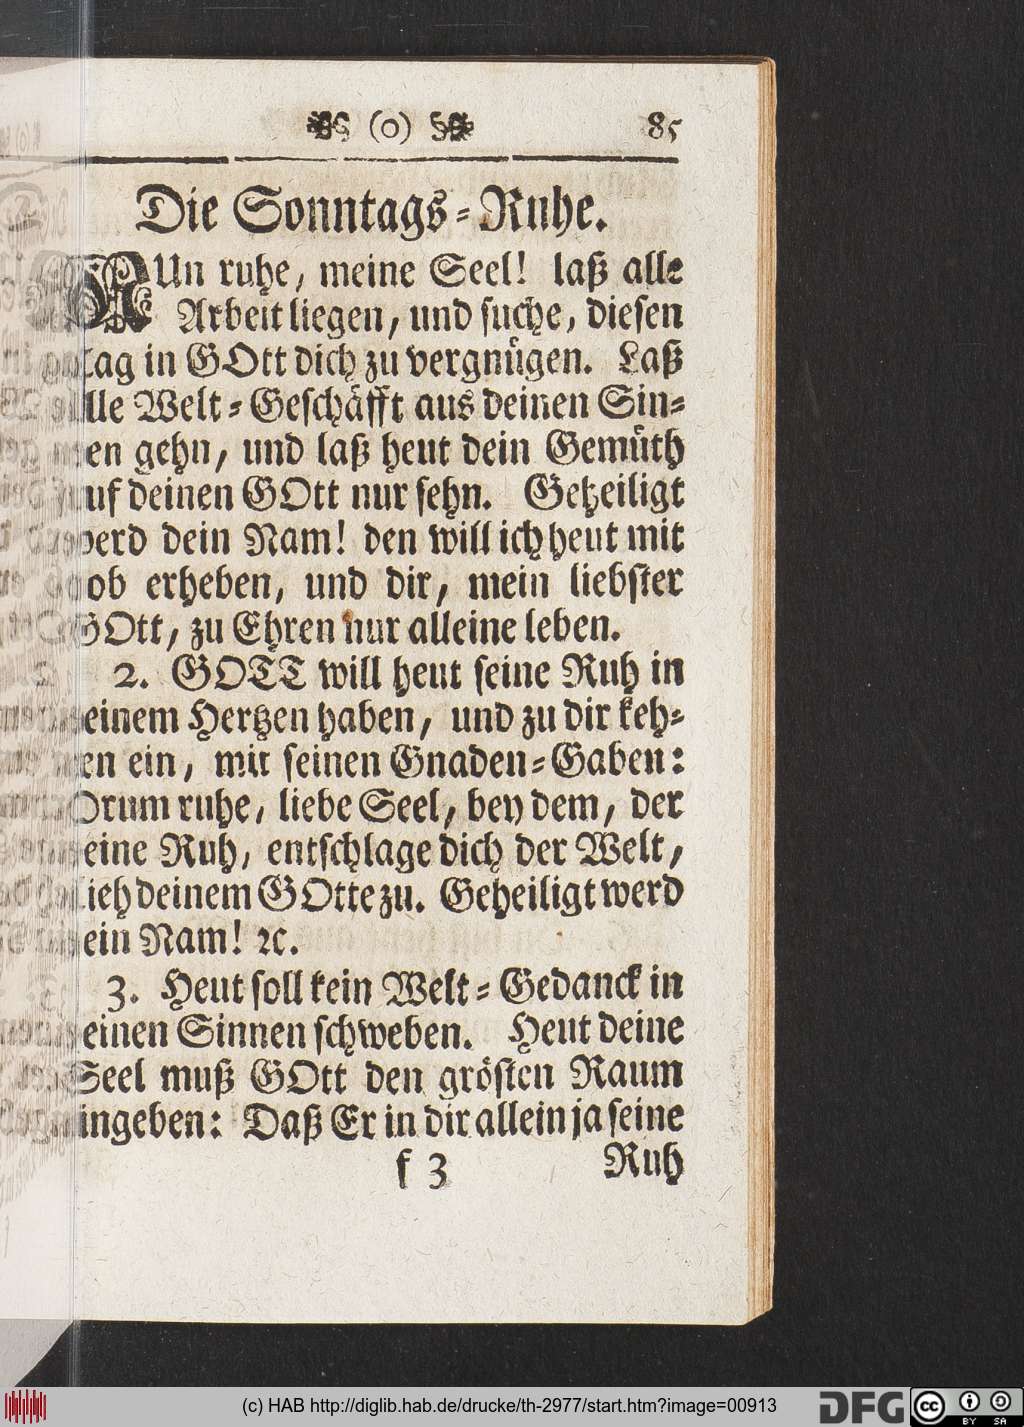 (o) 85
Die Sonntags-Ruhe.
NUn ruhe, meine Seel! laß alle
Arbeit liegen, und suche, diesen
Tag in GOtt dich zu vergnügen. Laß
alle Welt-Geschäfft aus deinen Sin-
en gehn, und laß heut dein Gemüth
auf deinen GOtt nur sehn. Geheiligt
werd dein Nam! den will ich heut mit
Lob erheben, und dir, mein liebster
GOtt, zu Ehren nur alleine leben.
2. GOTT will heut seine Ruh in
deinem Hertzen haben, und zu dir keh-
en ein, mit seinen Gnaden-Gaben:
Drum ruhe, liebe Seel, bey dem, der
deine Ruh, entschlage dich der Welt,
flieh deinem GOtte zu. Geheiligt werd
dein Nam! ꝛc.
3. Heut soll kein Welt-Gedanck in
deinen Sinnen schweben. Heut deine
Seel muß GOtt den grösten Raum
eingeben: Daß Er in dir allein ja seine
f 3 Ruh
(c) HAB http://diglib.hab.de/drucke/th-2977/start.htm?image=00913
DFG
cc
BY SA